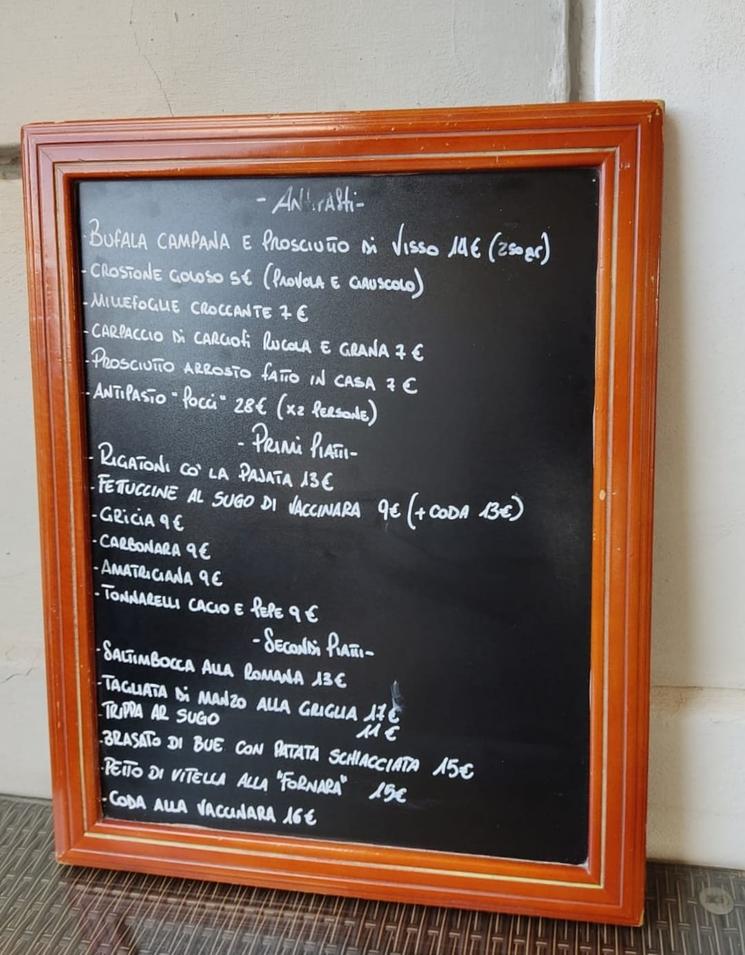 - Antipasti -
- BUFALA CAMPANA E PROSCIUTTO DI VISSO 14€ (250gr)
- CROSTONE GOLOSO 5€ (PROVOLA E CIAUSCOLO)
- MILLEFOGLIE CROCCANTE 7€
- CARPACCIO DI CARCIOFI RUCOLA E GRANA 7€
- PROSCIUTTO ARROSTO FATTO IN CASA 7€
- ANTIPASTO "POCCI" 28€ (X2 PERSONE)
- PRIMI PIATTI -
- RIGATONI CO' LA PAJATA 13€
- FETTUCCINE AL SUGO DI VACCINARA 9€ (+ CODA 13€)
- GRICIA 9€
- CARBONARA 9€
- AMATRICIANA 9€
- TONNARELLI CACIO E PEPE 9€
- SECONDI PIATTI -
- SALTIMBOCCA ALLA ROMANA 13€
- TAGLIATA DI MANZO ALLA GRIGLIA 17€
- TRIPPA AR SUGO 11€
- BRASATO DI BUE CON PATATA SCHIACCIATA 15€
- PETTO DI VITELLA ALLA "FORNARA" 15€
- CODA ALLA VACCINARA 16€